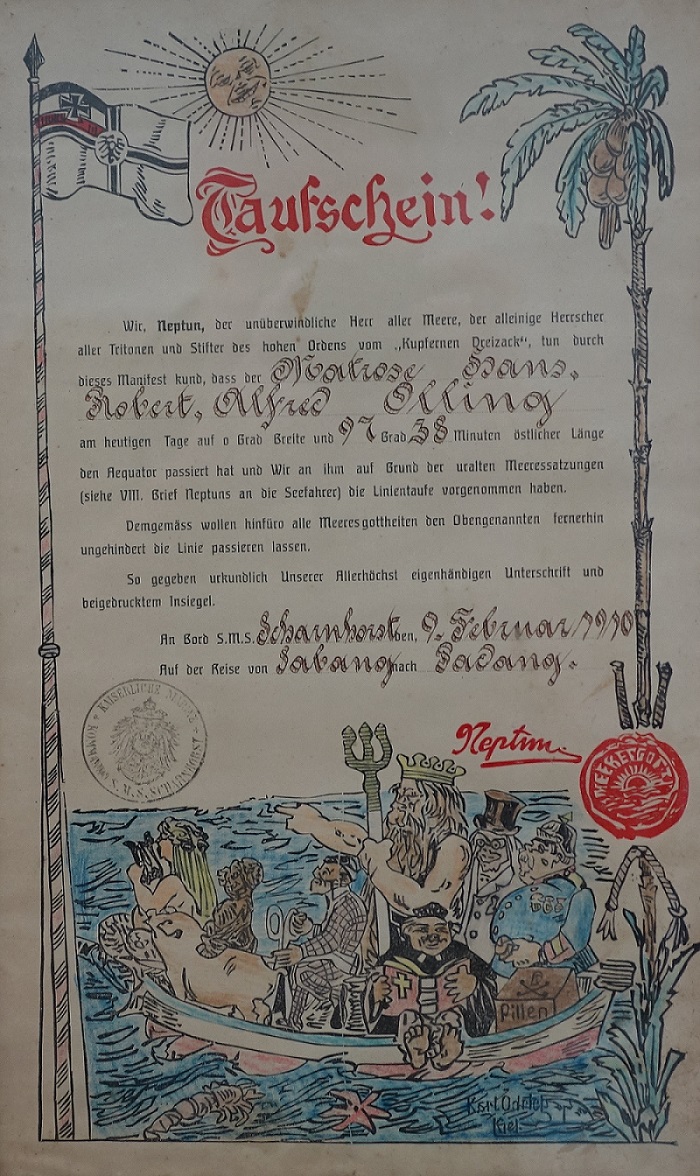 Taufschein!
Wir, Neptun, der unüberwindliche Herr aller Meere, der alleinige Herrscher
aller Tritonen und Stifter des hohen Ordens vom „Kupfernen Dreizack“, tun durch
dieses Manifest kund, dass der Matrose Hans,
Robert, Alfred Olling
am heutigen Tage auf 0 Grad Breite und 97 Grad 38 Minuten östlicher Länge
den Aequator passiert hat und Wir an ihm auf Grund der uralten Meeressatzungen
(siehe VIII. Brief Neptuns an die Seefahrer) die Linientaufe vorgenommen haben.
Demgemäss wollen hinfüro alle Meeresgottheiten den Obengenannten fernerhin
ungehindert die Linie passieren lassen.
So gegeben urkundlich Unserer Allerhöchst eigenhändigen Unterschrift und
beigedrucktem Insiegel.
An Bord S.M.S. Scharnhorst den, 9. Februar 1910
Auf der Reise von Sabang nach Padang.
KAISERLICHE MARINE
KOMMANDO S.M.S. SCHARNHORST
Neptun.
MEERESGOTT
Pillen
Karl
Kiel.